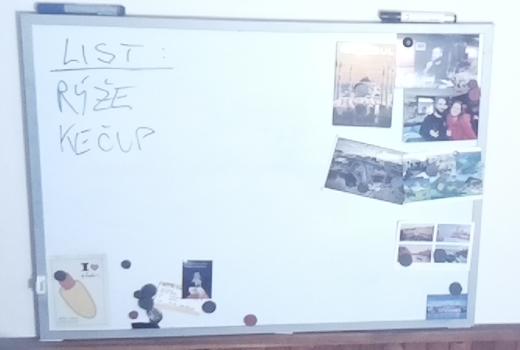 LIST:
RÝŽE
KEČUP
I